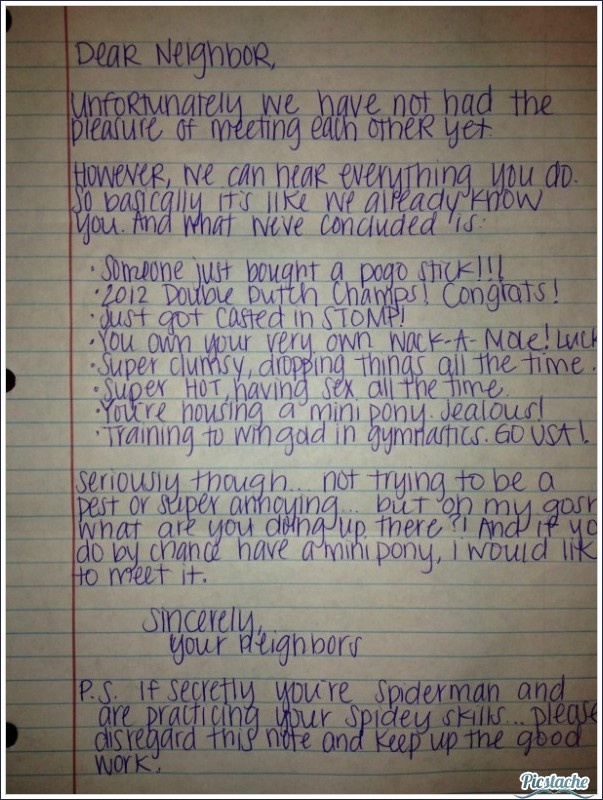 Dear Neighbor,
Unfortunately we have not had the
pleasure of meeting each other yet.
However, we can hear everything you do.
So basically it's like we already know
you. And what we've concluded is:
· Someone just bought a pogo stick!!!
· 2012 Double Dutch Champs! Congrats!
· Just got casted in STOMP!
· You own your very own Wack-A-Mole! Luck
· Super clumsy, dropping things all the time.
· Super HOT, having sex all the time.
· You're housing a mini pony. Jealous!
· Training to win gold in gymnastics. GO USA!
Seriously though... not trying to be a
pest or super annoying... but oh my gosh
what are you doing up there?! And if yo
do by chance have a mini pony, i would lik
to meet it.
Sincerely,
Your Neighbors
P.S. If secretly you're Spiderman and
are practicing your spidey skills... please
disregard this note and keep up the good
work.
Picstache